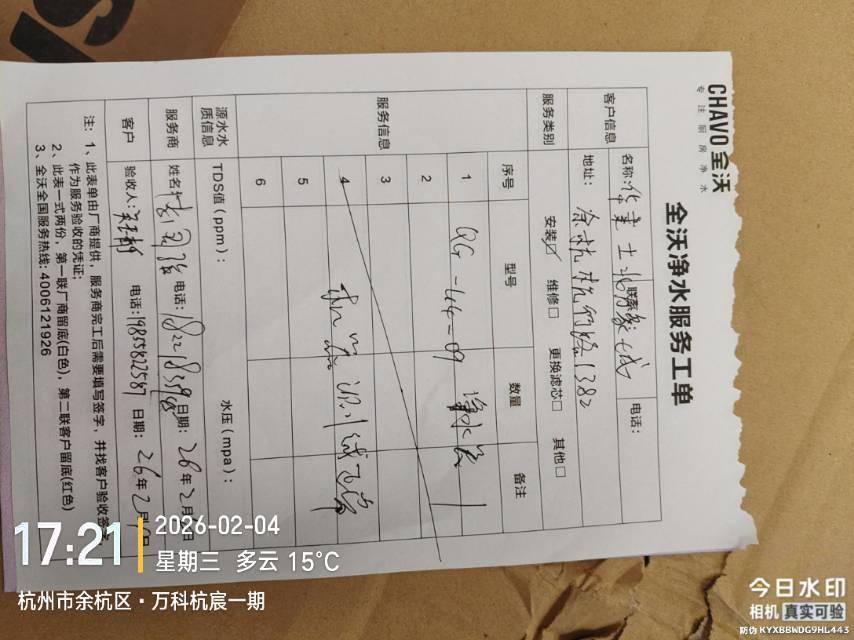 CHAVO 全沃
专注厨房净水
全沃净水服务工单
客户信息 名称: 联系人: 电话:
地址: 余杭杭行路1382
服务类别 安装☑ 维修□ 更换滤芯□ 其他□
服务信息 序号 型号 数量 备注
1 QG-44-09 净水器 1
2
3
4
5
6
源水水质信息 TDS值(ppm): 水压(mpa):
服务商 姓名: 电话: 日期: 26年2月
客户 验收人: 电话: 19855822587 日期: 26年2月
注: 1、此表单由厂商提供,服务商完工后需要填写签字,并找客户验收签字,
作为服务验收的凭证;
2、此表一式两份,第一联厂商留底(白色),第二联客户留底(红色)
3、全沃全国服务热线: 4006121926
17:21
2026-02-04
星期三 多云 15°C
杭州市余杭区·万科杭宸一期
今日水印
相机 真实可验
防伪 KYXBBWDG9HL443